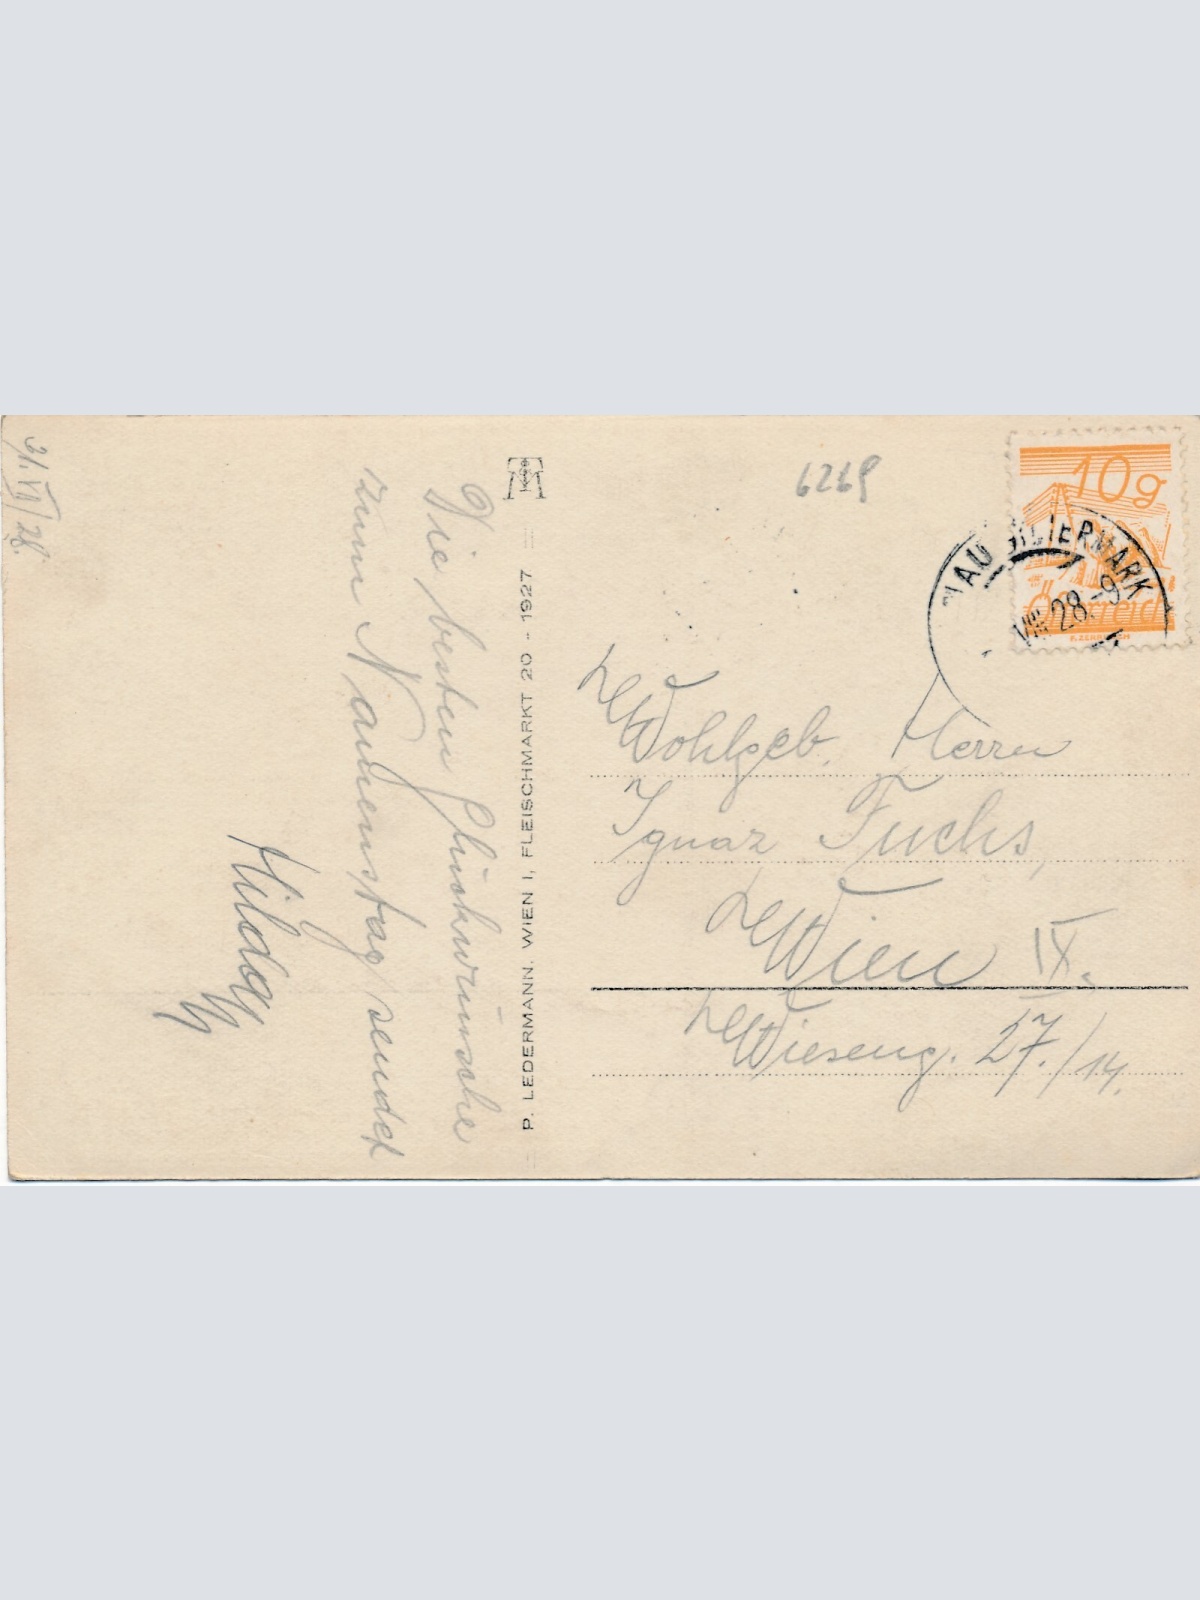 31. VII / 28.
Die besten Glückwünsche
zum Namenstag sendet
Hildeg
P. LEDERMANN, WIEN I, FLEISCHMARKT 20 - 1927
6269
10g
Österreich
AU STEIERMARK
VIII 28
Wohlgeb. Herrn
Ignaz Fuchs,
Wien IX.
Wieseng. 27./14.